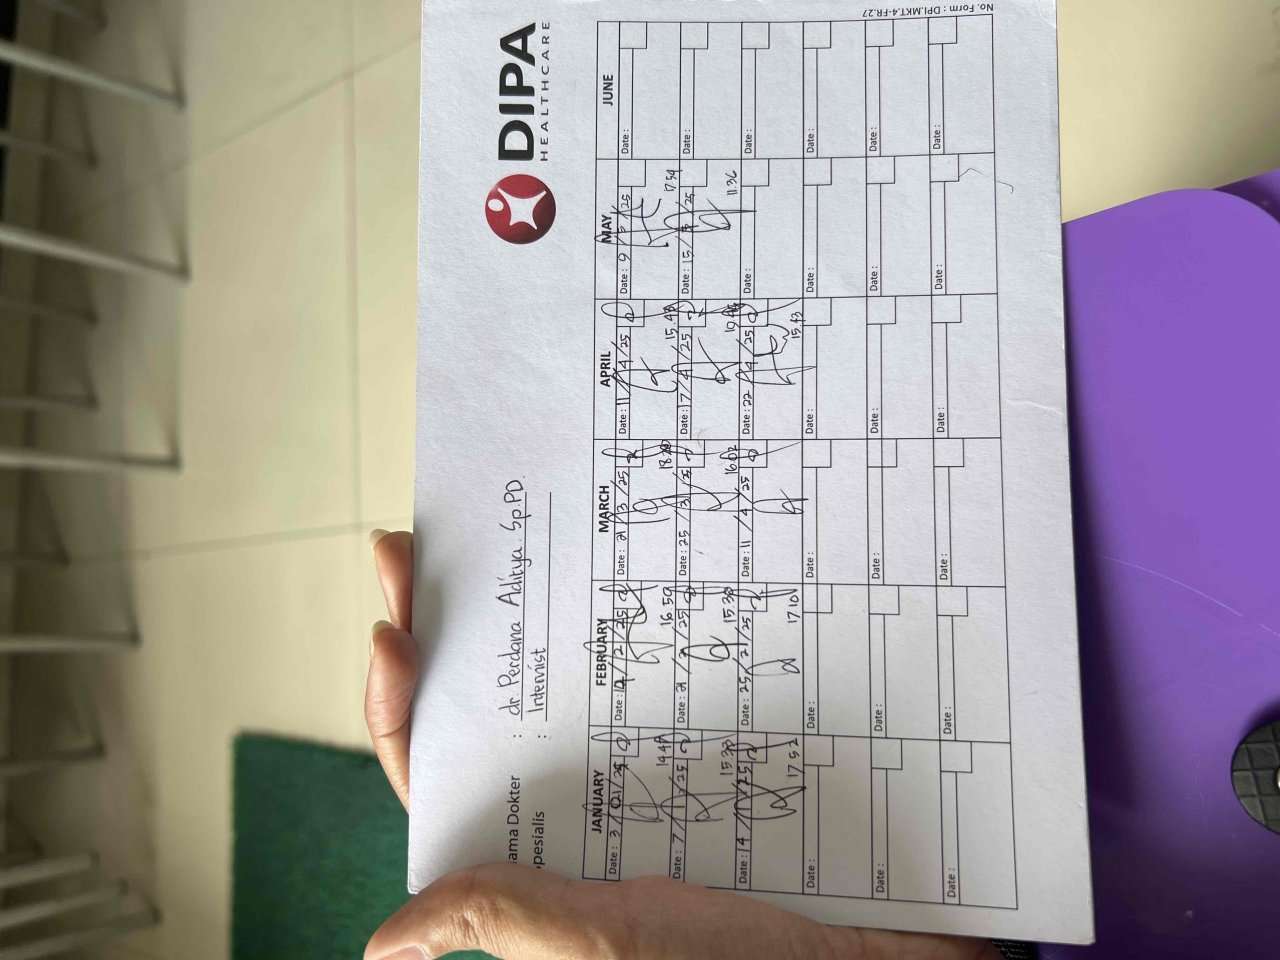 DIPA
HEALTHCARE
ama Dokter : dr. Perdana Aditya. Sp.PD.
pesialis : Internist
JANUARY FEBRUARY MARCH APRIL MAY JUNE
Date : 3 / 01 / 25 Date : 12 / 2 / 25 Date : 21 / 3 / 25 Date : 11 / 4 / 25 Date : 9 / 5 / 25 Date :
16.59 15.43 17.54
Date : 7 / 1 / 25 Date : 21 / 2 / 25 Date : 25 / 3 / 25 Date : 17 / 4 / 25 Date : 15 / 5 / 25 Date :
15.38 15.38 16.02 11.36
Date : 14 / 1 / 25 Date : 25 / 2 / 25 Date : 11 / 4 / 25 Date : 22 / 4 / 25 Date : Date :
17.52 17.10 15.43
Date : Date : Date : Date : Date : Date :
Date : Date : Date : Date : Date : Date :
Date : Date : Date : Date : Date : Date :
No. Form : DPI.MKT.4-FR.27